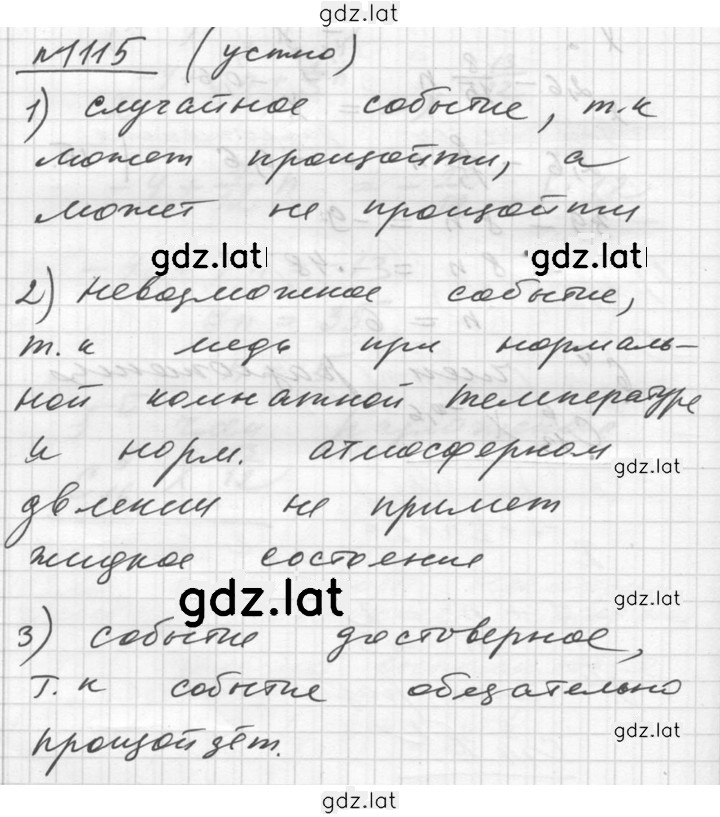 gdz.lat
№1115 (устно)
1) случайное событие, т.к
может произойти, а
может не произойти
gdz.lat gdz.lat
2) невозможное событие,
т.к медь при нормаль-
ной комнатной температуре
и норм. атмосферном
gdz.lat
двлении не примет
жидкое состоение
gdz.lat gdz.lat
3) событие достоверное,
т.к событие обезательно
gdz.lat
произойдёт.
gdz.lat